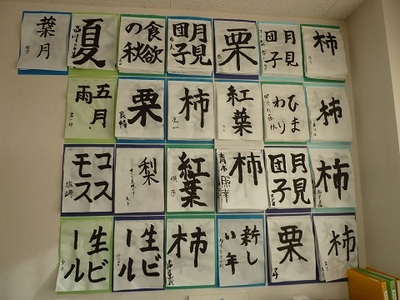 柿
月見
団子
栗
月見
団子
食欲
の秋
夏
葉月
柿
ひま
わり
紅葉
柿
栗
五月
雨
柿
月見
団子
柿
紅葉
梨
コス
モス
柿
栗
新し
い年
柿
生ビ
ール
生ビ
ール